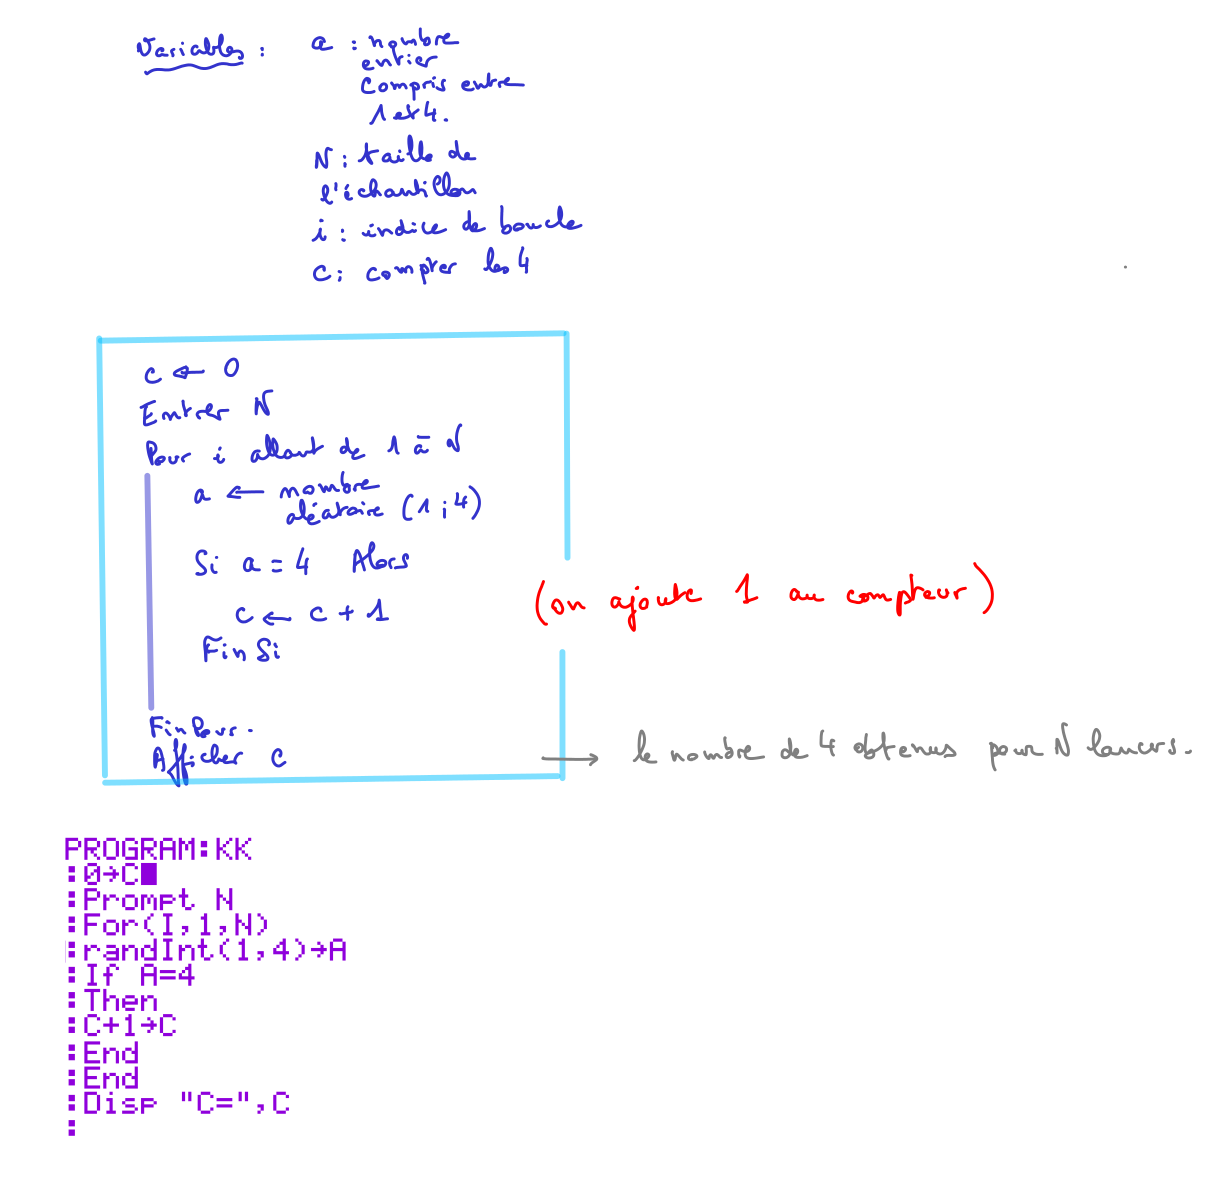 Variables : a : nombre
entier
compris entre
1 et 4.
N : taille de
l'échantillon
i : indice de boucle
C : compter les 4
c ← 0
Entrer N
Pour i allant de 1 à N
a ← nombre
aléatoire (1 ; 4)
Si a = 4 Alors
c ← c + 1
(on ajoute 1 au compteur)
Fin Si
Fin Pour.
Afficher C → le nombre de 4 obtenus pour N lancers.
PROGRAM:KK
:0→C
:Prompt N
:For(I,1,N)
:randInt(1,4)→A
:If A=4
:Then
:C+1→C
:End
:End
:Disp "C=",C
: